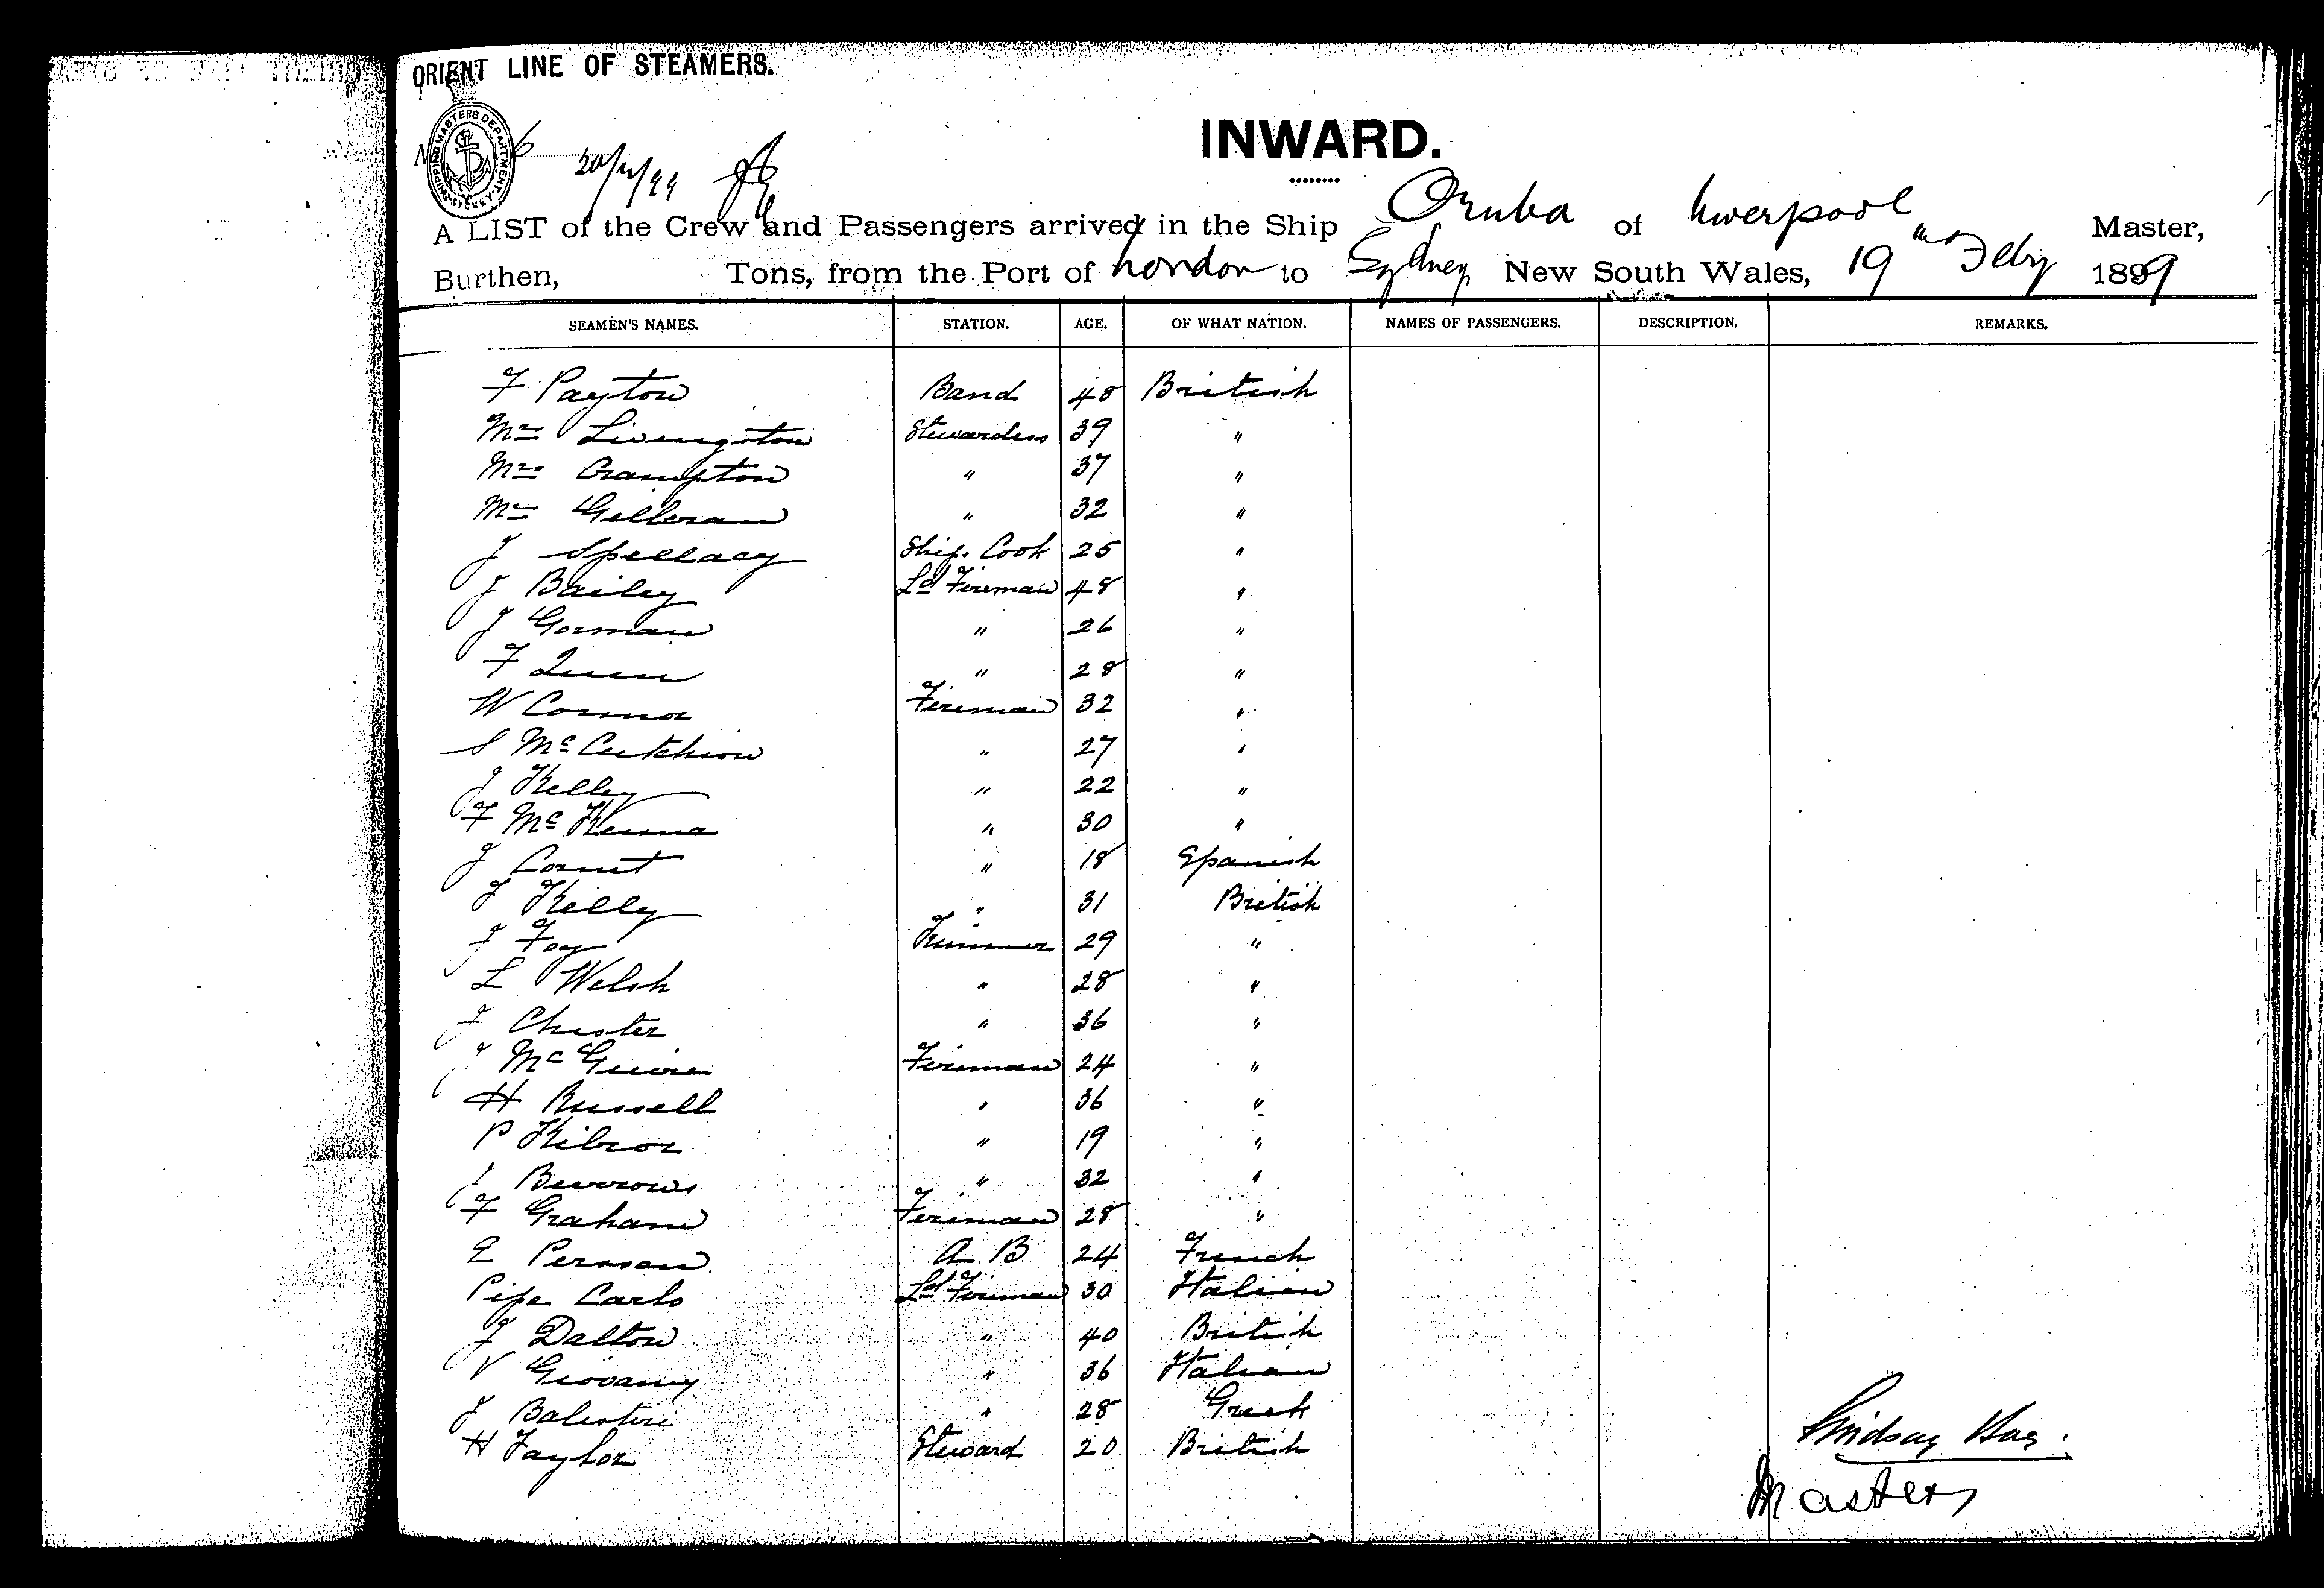 ORIENT LINE OF STEAMERS.
INWARD.
SHIPPING MASTERS DEPARTMENT. SYDNEY
20/2/99
A LIST of the Crew and Passengers arrived in the Ship Oruba of Liverpool Master,
Burthen, Tons, from the Port of London to Sydney New South Wales, 19th Feby 1899
SEAMEN'S NAMES. STATION. AGE. OF WHAT NATION. NAMES OF PASSENGERS. DESCRIPTION. REMARKS.
F Payton Band 48 British
Mrs Livingston Stewardess 39 "
Mrs Crampton " 37 "
Mrs Gilleran " 32 "
J Spellacy Ship's Cook 25 "
J Bailey Ld Fireman 48 "
J Gorman " 26 "
F Quinn " 28 "
W Connor Fireman 32 "
S McCutchion " 27 "
J Kelley " 22 "
F McKenna " 30 "
J Cornut " 18 Spanish
J Kelly " 31 British
J Foy Trimmer 29 "
L Welsh " 28 "
J Chester " 36 "
J McGuire Fireman 24 "
H Russell " 36 "
P Kilroe " 19 "
J Burrows " 32 "
F Graham Fireman 28 "
E Person A B 24 French
Pipe Carlo Ld Fireman 30 Italian
J Dalton " 40 British
V Giovany " 36 Italian
J Balestere " 28 Greek
H Taylor Steward 20 British
Master